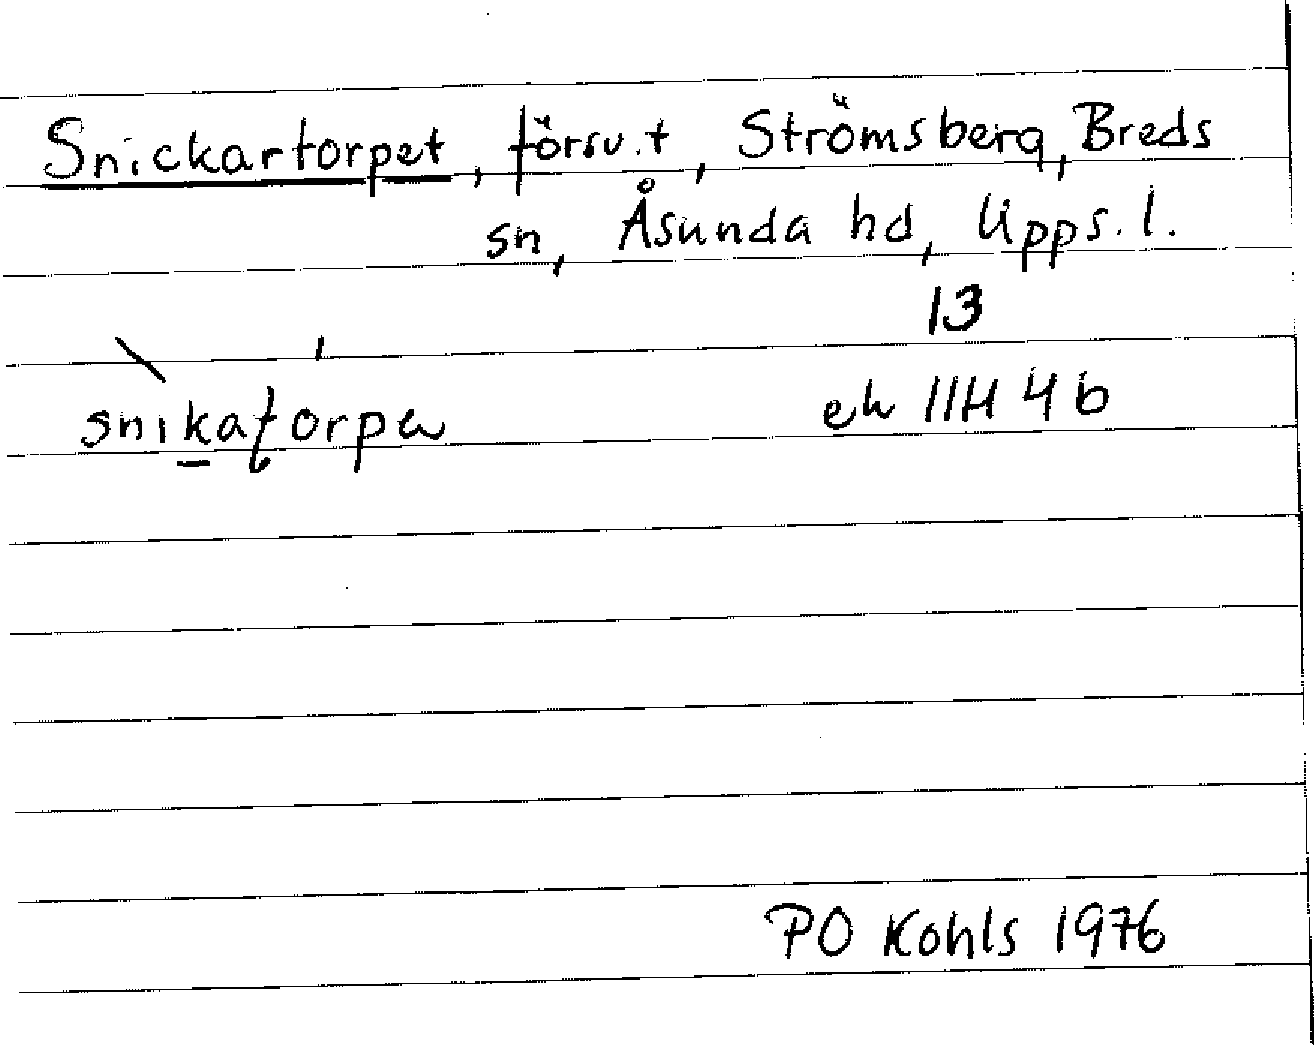 Snickartorpet, försv. t, Strömsberg, Breds
sn, Åsunda hd, Upps. l.
13
snikatorpa ek 11H 4 b
PO Kohls 1976